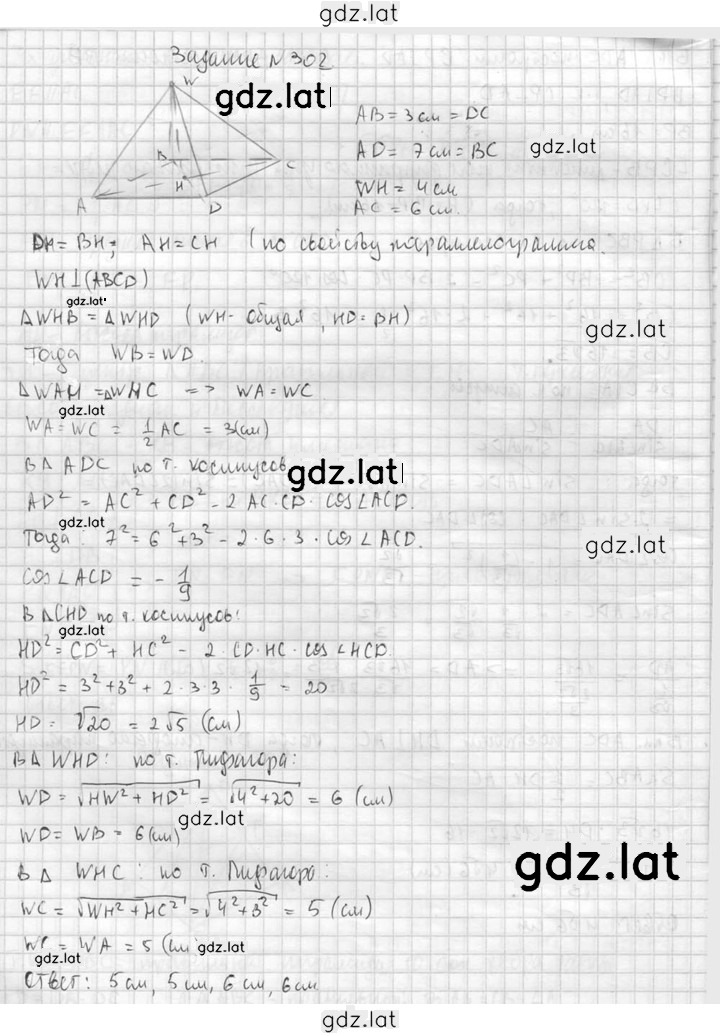 gdz.lat
Задание N 302
W
gdz.lat
AB = 3 см = DC
AD = 7 см = BC
gdz.lat
B
C
H
WH = 4 см
A
D
AC = 6 см.
DH = BH; AH = CH (по свойству параллелограмма.
WH⊥(ABCD)
gdz.lat
ΔWHB = ΔWHD (WH - общая, HD = BH)
gdz.lat
Тогда WB = WD.
ΔWAH = ΔWHC => WA = WC
gdz.lat
WA = WC = 1/2 AC = 3(см)
В Δ ADC по т. косинусов
gdz.lat
AD² = AC² + CD² - 2 AC·CD · cos∠ACD.
gdz.lat
Тогда: 7² = 6² + 3² - 2·6·3 · cos ∠ACD.
gdz.lat
cos∠ACD = - 1/9
В ΔCHD по т. косинусов:
gdz.lat
HD² = CD² + HC² - 2·CD·HC·cos∠HCD.
HD² = 3² + 3² + 2·3·3· 1/9 = 20
HD = √20 = 2√5 (см)
В Δ WHD: по т. Пифагора:
WD = √HW² + HD² = √4² + 20 = 6 (см)
gdz.lat
WD = WB = 6(см)
В Δ WHC: по т. Пифагора:
gdz.lat
WC = √WH² + HC² = √4² + 3² = 5 (см)
WC = WA = 5 (см
gdz.lat
gdz.lat
Ответ: 5 см, 5 см, 6 см, 6 см
gdz.lat